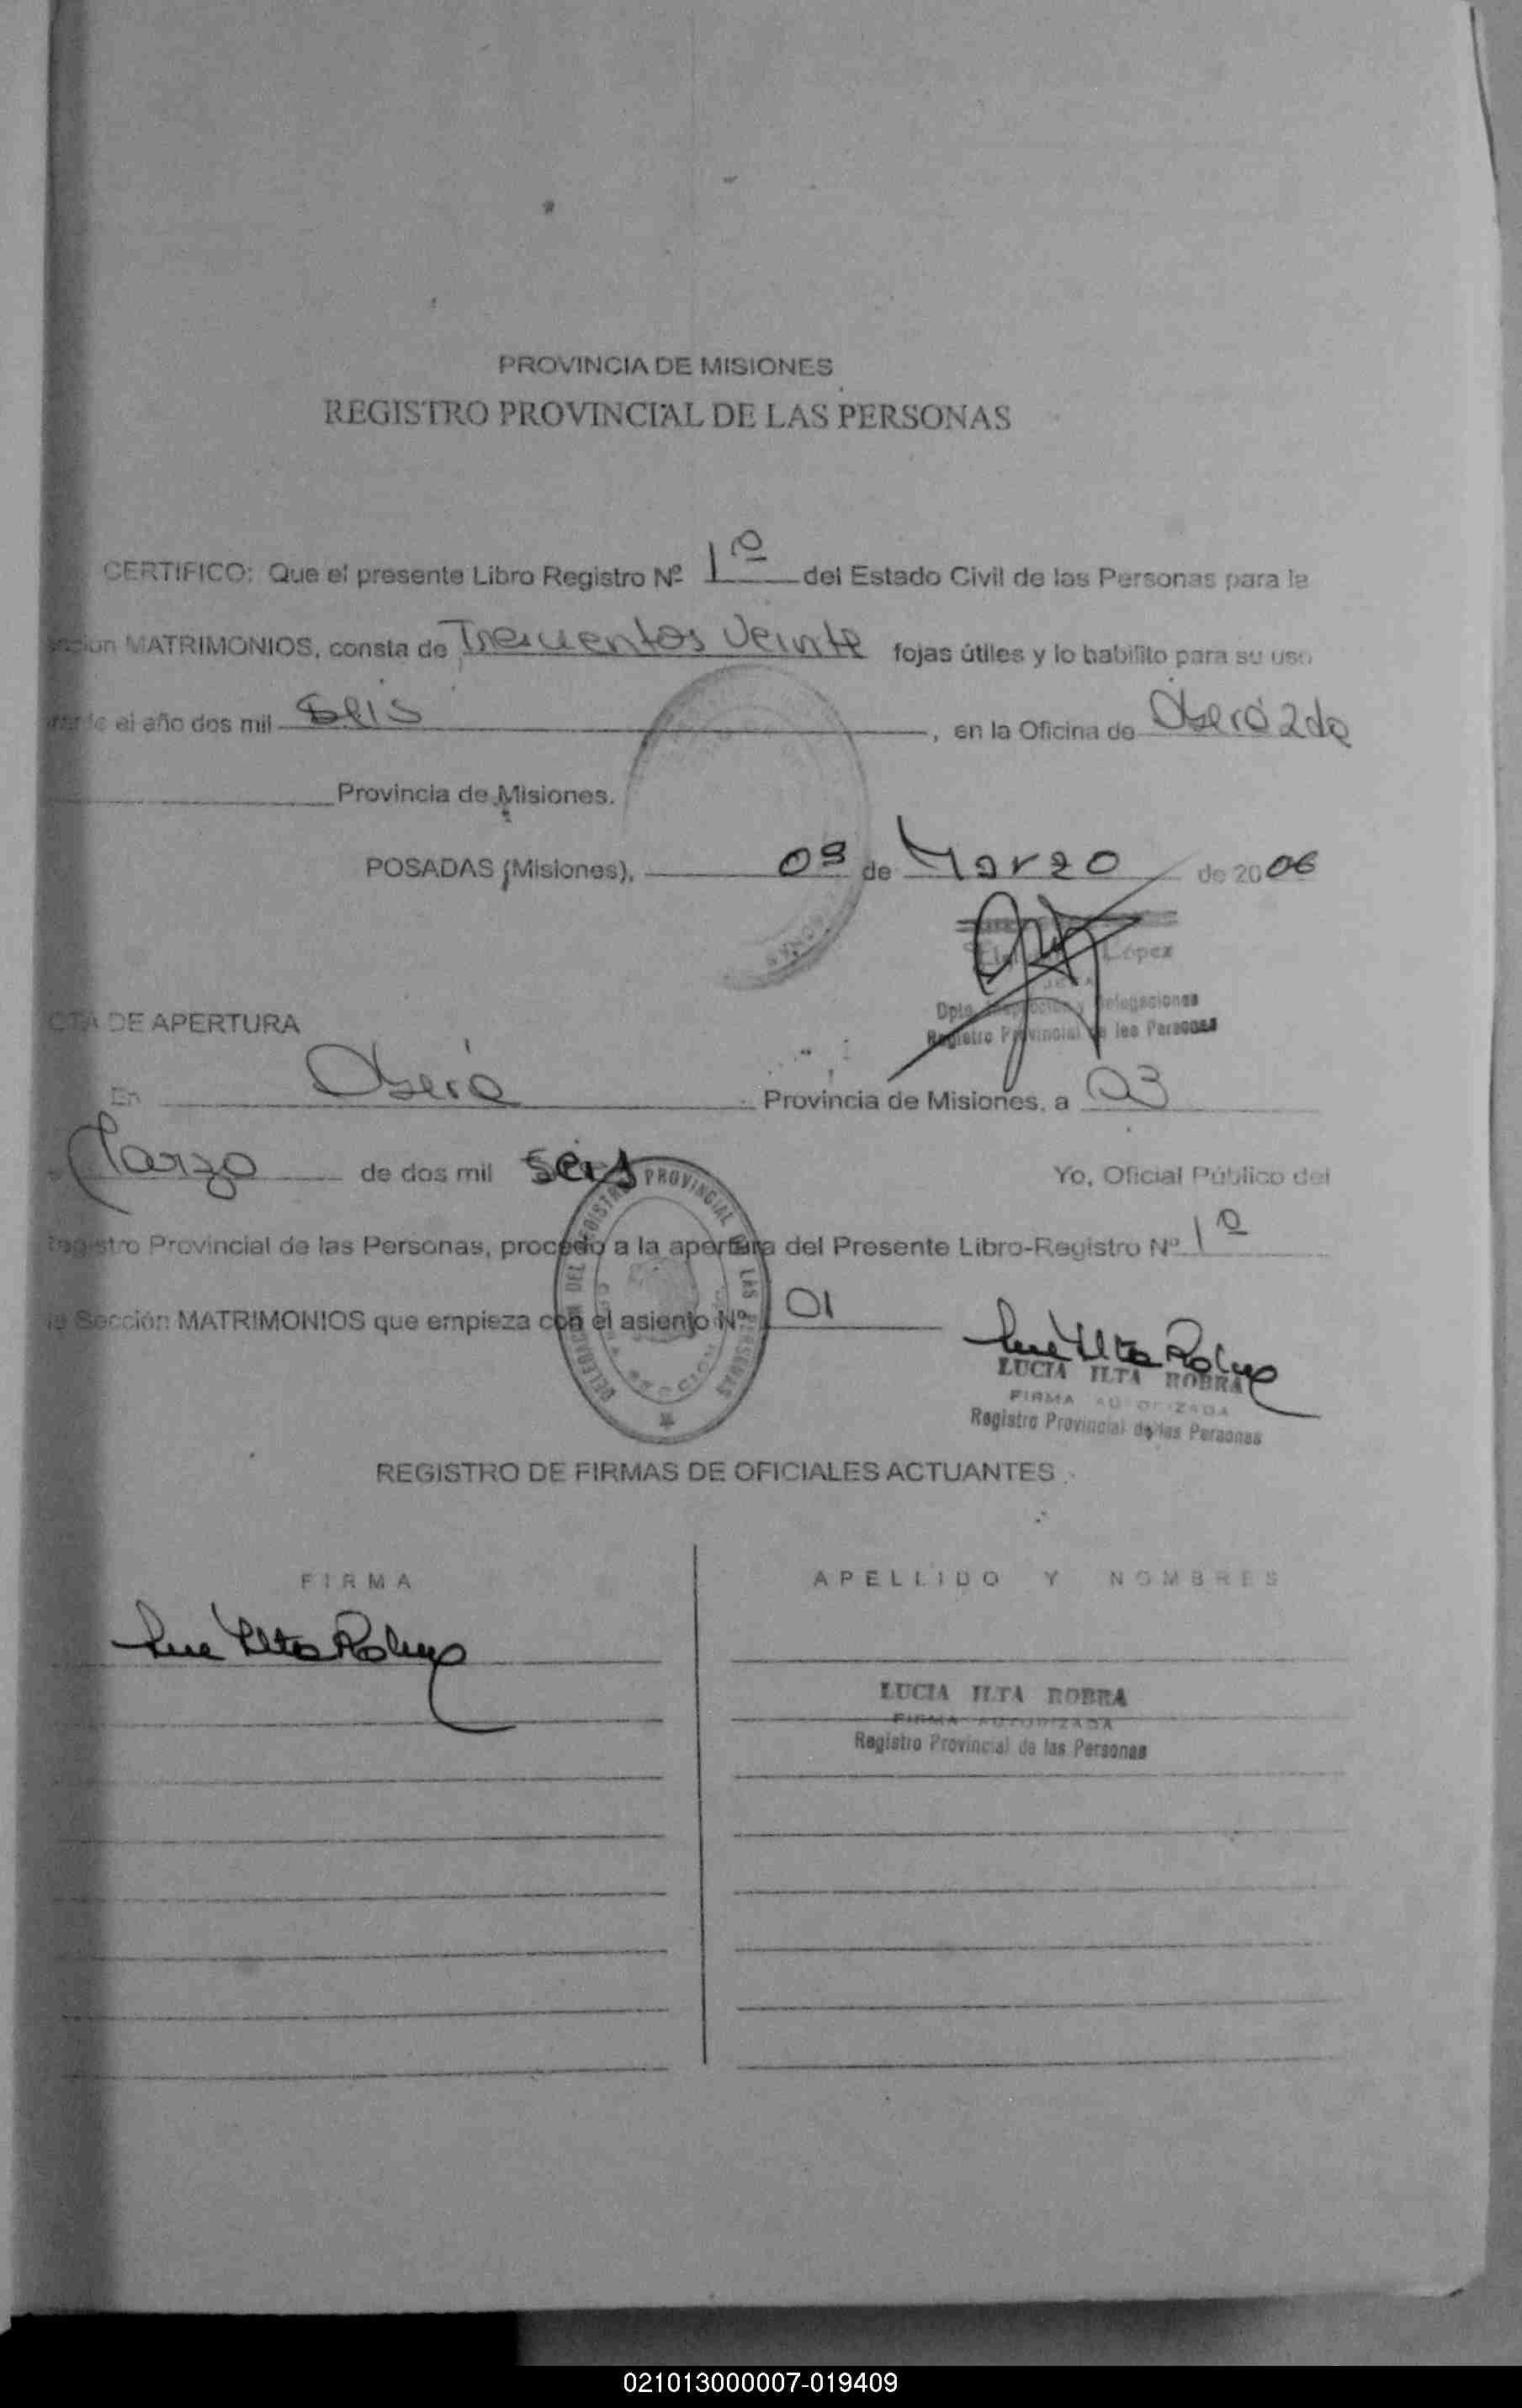 PROVINCIA DE MISIONES
REGISTRO PROVINCIAL DE LAS PERSONAS
CERTIFICO: Que el presente Libro Registro Nº 1º del Estado Civil de las Personas para la
MATRIMONIOS, consta de Trecientos Veinte fojas útiles y lo habilito para su uso
el año dos mil Seis, en la Oficina de Oberá 2da
Provincia de Misiones.
POSADAS (Misiones), 09 de Marzo de 2006
López
Dpto. y Delegaciones
Registro Provincial de las Personas
DE APERTURA
En Oberá Provincia de Misiones, a 03
Marzo de dos mil seis Yo, Oficial Público del
Registro Provincial de las Personas, procedo a la apertura del Presente Libro-Registro Nº 1º
la Sección MATRIMONIOS que empieza con el asiento Nº 01
DELEGACION DEL REGISTRO PROVINCIAL DE LAS PERSONAS
LUCIA ILTA ROBRA
FIRMA AUTORIZADA
Registro Provincial de las Personas
REGISTRO DE FIRMAS DE OFICIALES ACTUANTES
FIRMA APELLIDO Y NOMBRES
LUCIA ILTA ROBRA
FIRMA AUTORIZADA
Registro Provincial de las Personas
021013000007-019409